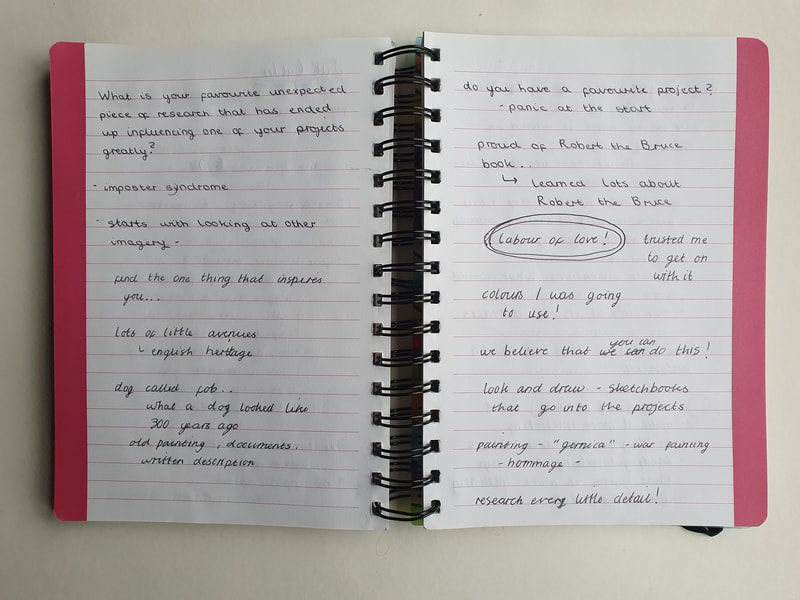 What is your favourite unexpected
piece of research that has ended
up influencing one of your projects
greatly?
- imposter syndrome
- starts with looking at other
imagery -
find the one thing that inspires
you...
lots of little avenues
↳ english heritage
dog called fob...
what a dog looked like
300 years ago
old painting, documents,
written description
do you have a favourite project?
- panic at the start
proud of Robert the Bruce
book...
↳ learned lots about
Robert the Bruce
labour of love!
trusted me
to get on
with it
colours I was going
to use!
you can
we believe that we can do this!
look and draw - sketchbooks
that go into the projects
painting - "gernica" - war painting
- hommage -
research every little detail!